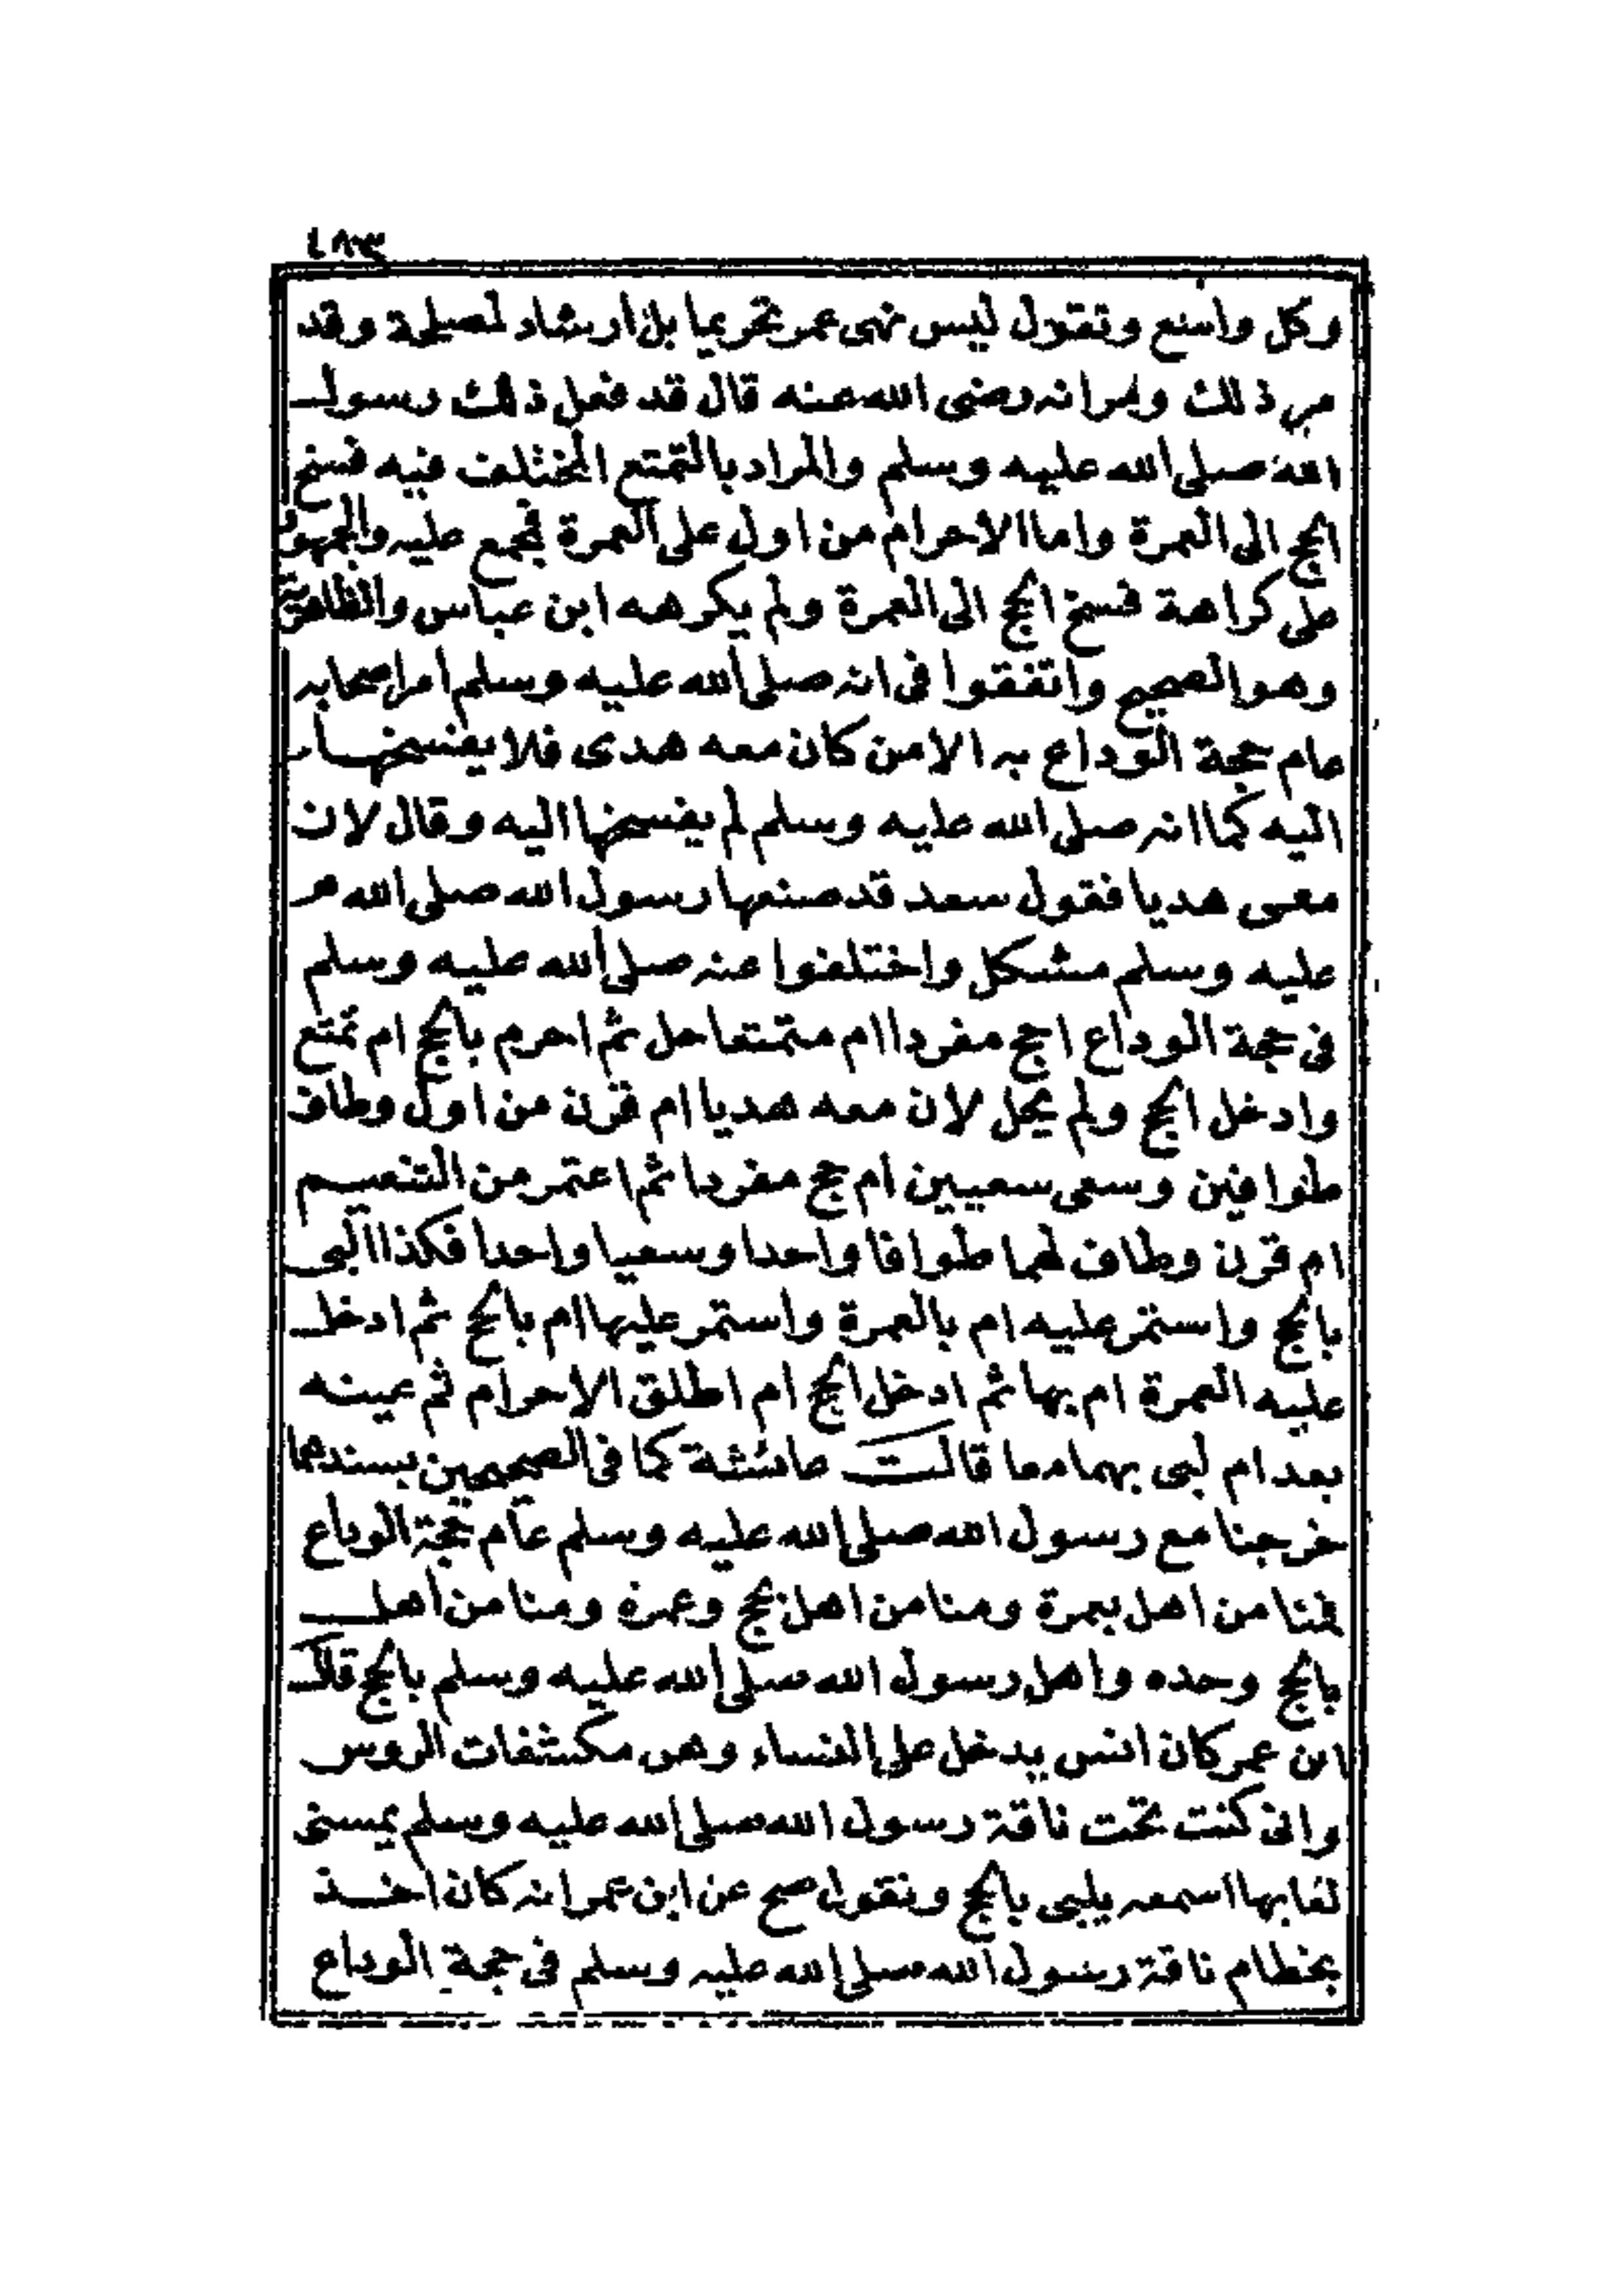 ٤٨٣
وكل واسع ونقول ليس نهى عمر تحريما بل ارشاد لمصلحة وقد
مر ذلك ومر انه رضى الله عنه قال قد فعل ذلك رسول
الله صلى الله عليه وسلم والمراد بالتمتع المختلف فيه فسخ
الحج الى العمرة واما الاحرام من اول على العمرة فمجمع عليه والجمهور
على كراهة فسخ الحج الى العمرة ولم يكرهه ابن عباس والظاهرية
وهو الصحيح واتفقوا فى انه صلى الله عليه وسلم امر اصحابه
عام حجة الوداع به الا من كان معه هدى فلا يفسخها
اليه كما انه صلى الله عليه وسلم لم يفسخها اليه وقال لان
معى هديا فقول سعد قد صنعها رسول الله صلى الله
عليه وسلم مشكل واختلفوا عنه صلى الله عليه وسلم
فى حجة الوداع احج مفردا ام متمتعا حل ثم احرم بالحج ام تمتع
وادخل الحج ولم يحل لان معه هديا ام قرن من اول وطاف
طوافين وسعى سعيين ام حج مفردا ثم اعتمر من التنعيم
ام قرن وطاف لهما طوافا واحدا وسعيا واحدا فكذا البى
بالحج واستمر عليه ام بالعمرة واستمر عليها ام بالحج ثم ادخل
عليه العمرة ام بها ثم ادخل الحج ام اطلق الاحرام ثم عينه
بعد ام لبى بهما معا قالت عائشة كما فى الصحيحين بسندهما
خرجنا مع رسول الله صلى الله عليه وسلم عام حجة الوداع
فمنا من اهل بعمرة ومنا من اهل بحج وعمرة ومنا من اهل
بالحج وحده واهل رسول الله صلى الله عليه وسلم بالحج قال
ابن عمر كان انس يدخل على النساء وهن مكشفات الروس
وانى كنت تحت ناقة رسول الله صلى الله عليه وسلم يمسنى
لعابها اسمعه يلبى بالحج ونقول صح عن ابن عمر انه كان اخذ
بخطام ناقة رسول الله صلى الله عليه وسلم فى حجة الوداع